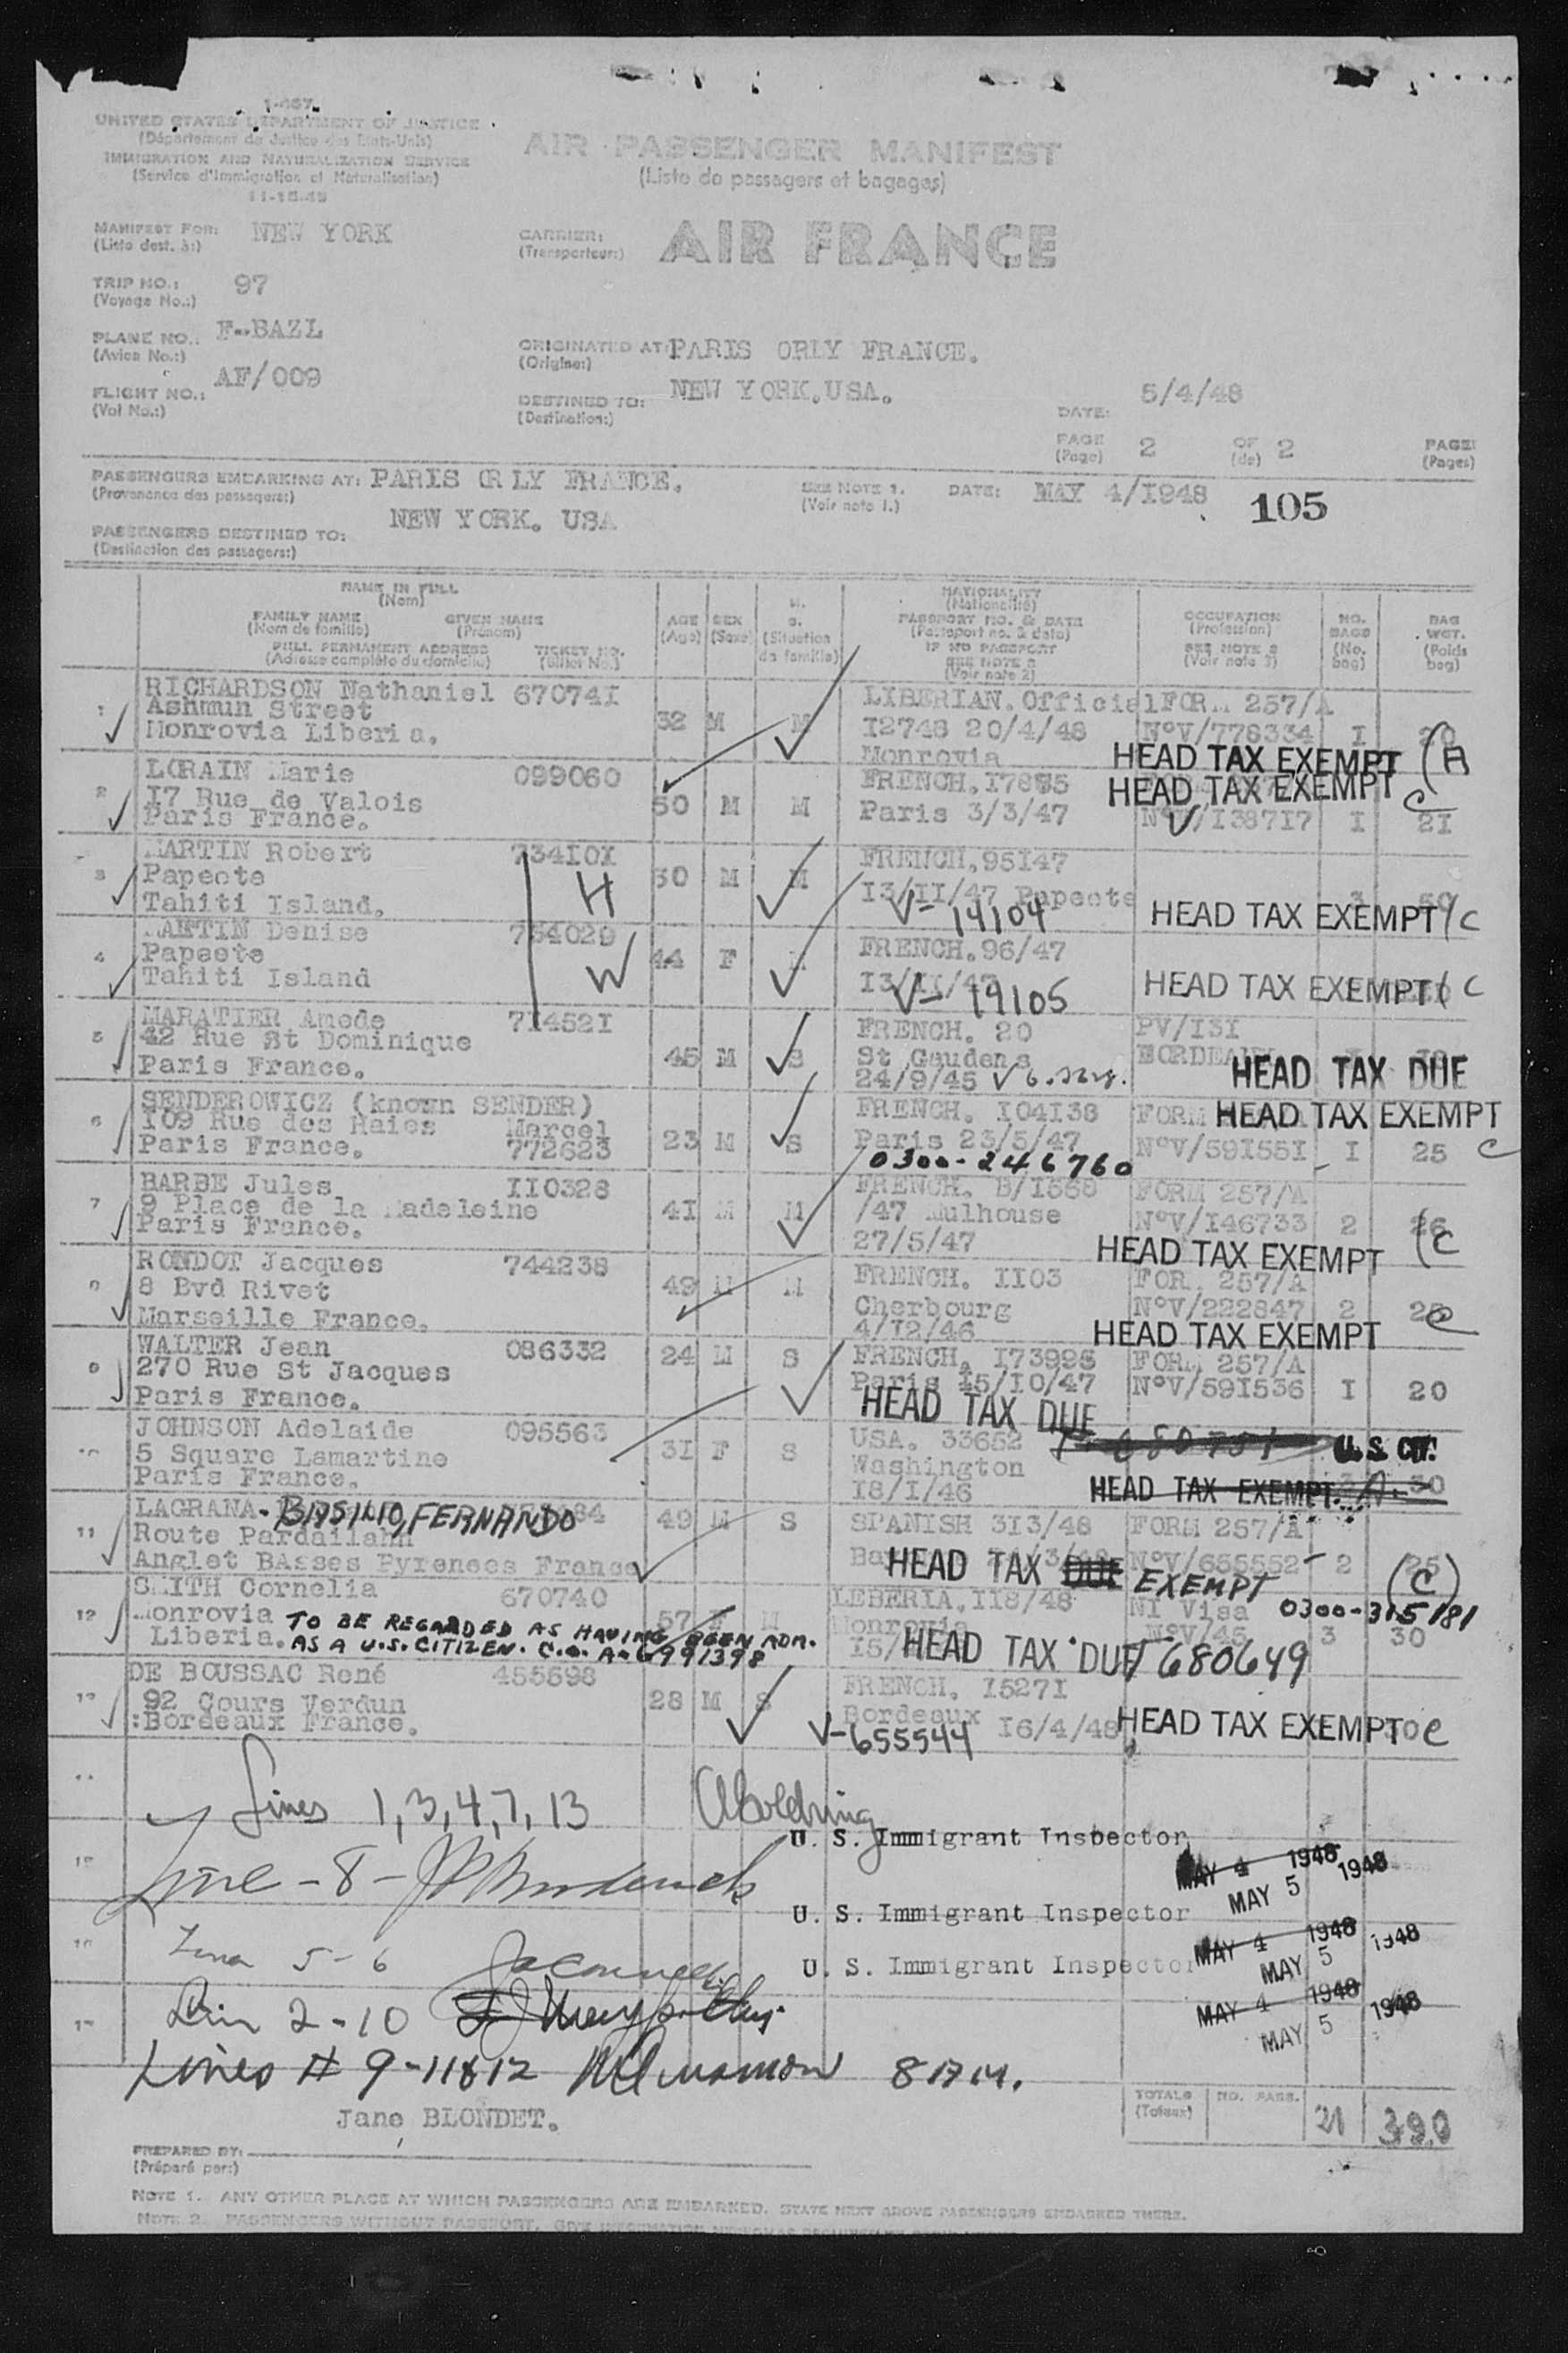 I-467
UNITED STATES DEPARTMENT OF JUSTICE
(Département de Justice des Etats-Unis)
IMMIGRATION AND NATURALIZATION SERVICE
(Service d'Immigration et Naturalisation)
AIR PASSENGER MANIFEST
(Liste de passagers et bagages)
MANIFEST FOR: NEW YORK
(Liste dest. à:)
CARRIER: AIR FRANCE
(Transporteur:)
TRIP NO.: 97
(Voyage No.:)
PLANE NO.: F-BAZL
(Avion No.:)
ORIGINATED AT: PARIS ORLY FRANCE.
(Origine:)
FLIGHT NO.: AF/009
(Vol No.:)
DESTINED TO: NEW YORK.USA.
(Destination:)
DATE: 5/4/48
PAGE 2 OF 2 PAGE
(Page) (de) (Pages)
PASSENGERS EMBARKING AT: PARIS ORLY FRANCE.
(Provenance des passagers:)
SEE NOTE 1. DATE: MAY 4/1948 105
(Voir note 1.)
PASSENGERS DESTINED TO: NEW YORK. USA
(Destination des passagers:)
NAME IN FULL
(Nom)
FAMILY NAME GIVEN NAME
(Nom de famille) (Prénom)
FULL PERMANENT ADDRESS TICKET NO.
(Adresse complète du domicile) (Billet No.)
AGE
(Age)
SEX
(Sexe)
M.
S.
(Situation
de famille)
NATIONALITY
(Nationalité)
PASSPORT NO. & DATE
(Passeport no. & date)
IF NO PASSPORT
SEE NOTE 2
(Voir note 2)
OCCUPATION
(Profession)
SEE NOTE 3
(Voir note 3)
NO.
BAGS
(No.
bag)
BAG
WGT.
(Poids
bag)
RICHARDSON Nathaniel 670741 LIBERIAN.Official FORM 257/A
1 Ashmun Street 32 M M I2748 20/4/48 N°V/778334 I 20
Monrovia Liberia. Monrovia HEAD TAX EXEMPT (A
LORAIN Marie 099060 FRENCH.I7885 HEAD TAX EXEMPT C
2 17 Rue de Valois 50 M M Paris 3/3/47 N°V/I38717 I 21
Paris France.
MARTIN Robert 734101 FRENCH.95147
3 Papeete H 50 M M 13/II/47 Papeete
Tahiti Island. V-14104 HEAD TAX EXEMPT/C
MARTIN Denise 754029 FRENCH.96/47
4 Papeete W 44 F M 13/II/47
Tahiti Island V-14105 HEAD TAX EXEMPT (C
MARATIER Amede 714521 FRENCH. 20 PV/I3I
5 42 Rue St Dominique 45 M S St Gaudens BORDEAUX
Paris France. 24/9/45 HEAD TAX DUE
SENDEROWICZ (known SENDER) FRENCH. I04I38 FORM HEAD TAX EXEMPT
6 109 Rue des Haies Marcel 23 M S Paris 23/5/47 N°V/59I55I I 25 C
Paris France. 772623 0300-246760
BARBE Jules II0328 FRENCH. B/I568 FORM 257/A
7 9 Place de la Madeleine 41 M M /47 Mulhouse N°V/I46733 2 26
Paris France. 27/5/47 HEAD TAX EXEMPT (C
RONDOT Jacques 744238 FRENCH. II03 FOR. 257/A
8 8 Bvd Rivet 49 M M Cherbourg N°V/222847 2 25
Marseille France. 4/12/46 HEAD TAX EXEMPT C
WALTER Jean 086332 24 M S FRENCH. I73995 FORM 257/A
9 270 Rue St Jacques Paris 15/10/47 N°V/59I536 I 20
Paris France. HEAD TAX DUE
JOHNSON Adelaide 095563 USA. 33652 T-680751 U.S. CIT.
10 5 Square Lamartine 31 F S Washington
Paris France. 18/I/46 HEAD TAX EXEMPT 30
LAGRANA - BASILIO, FERNANDO 49 M S SPANISH 313/48 FORM 257/A
11 Route Pardaillahn HEAD TAX DUE EXEMPT N°V/655552 2 25 (C)
Anglet BAsses Pyrenees France
SMITH Cornelia 670740 LEBERIA.II8/48 NI Visa 0300-315181
12 Monrovia 57 F M Monrovia N°V/45 3 30
Liberia. TO BE REGARDED AS HAVING BEEN ADM. AS A U.S. CITIZEN. C.O. A-6991398 HEAD TAX DUE T680649
DE BOUSSAC René 455598 FRENCH. I527I
13 92 Cours Verdun 28 M S Bordeaux 16/4/48
:Bordeaux France. V-655544 HEAD TAX EXEMPT C
14 Lines 1,3,4,7,13
U. S. Immigrant Inspector
MAY 4 1948
MAY 5 1948
15 Line - 8 -
U. S. Immigrant Inspector
MAY 4 1948
MAY 5 1948
16 Lines 5-6
U. S. Immigrant Inspector
MAY 4 1948
MAY 5 1948
17 Lin 2-10
Lines # 9-11&12 8 AM.
Jane BLONDET.
TOTALS NO. PASS. 21 390
(Totaux)
PREPARED BY:
(Préparé par:)
NOTE 1. ANY OTHER PLACE AT WHICH PASSENGERS ARE EMBARKED. STATE NEXT ABOVE PASSENGERS EMBARKED THERE.
NOTE 2. PASSENGERS WITHOUT PASSPORT, GIVE INFORMATION